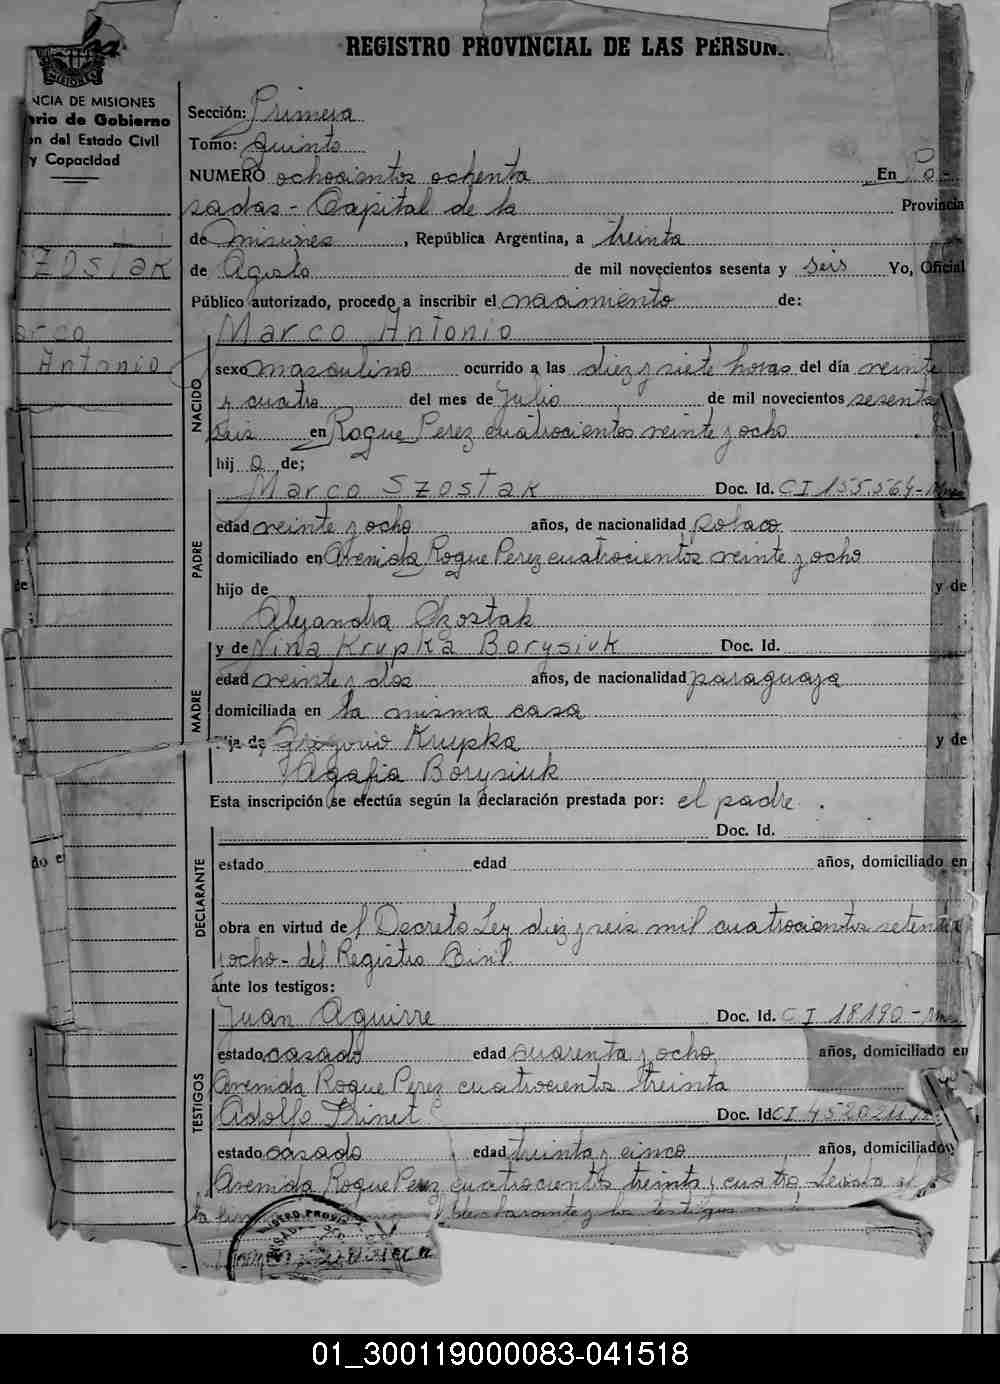 REGISTRO PROVINCIAL DE LAS PERSON
MISIONES
NCIA DE MISIONES
erio de Gobierno
n del Estado Civil
y Capacidad
Sección: Primera
Tomo: quinto
NUMERO ochocientos ochenta En Po-
sadas - Capital de la Provincia
de misiones, República Argentina, a treinta
de Agosto de mil novecientos sesenta y seis Yo, Oficial
Público autorizado, procedo a inscribir el nacimiento de:
SZOSTAK
arco
Antonio
NACIDO
Marco Antonio
sexo masculino ocurrido a las diez y siete horas del día veinte
y cuatro del mes de Julio de mil novecientos sesenta
seis en Roque Perez cuatrocientos veinte y ocho
hij o de;
PADRE
Marco SZOSTAK Doc. Id. CI 155.564-
edad veinte y ocho años, de nacionalidad polaco
domiciliado en Avenida Roque Perez cuatrocientos veinte y ocho
hijo de y de
Alejandra Szostak
MADRE
y de Nina Krupka Borysiuk Doc. Id.
edad veinte y dos años, de nacionalidad paraguaya
domiciliada en la misma casa
hija de Gregorio Krupka y de
Agafia Borysiuk
Esta inscripción se efectúa según la declaración prestada por: el padre.
DECLARANTE
Doc. Id.
estado edad años, domiciliado en
obra en virtud del Decreto Ley diez y seis mil cuatrocientos setenta
ocho - del Registro Civil
ante los testigos:
TESTIGOS
Juan Aguirre Doc. Id. CI 18190-
estado casado edad cuarenta y ocho años, domiciliado en
Avenida Roque Perez cuatrocientos treinta
Adolfo Doc. Id. CI
estado casado edad treinta y cinco años, domiciliado
Avenida Roque Perez cuatrocientos treinta y cuatro. Leida el
declarante y los testigos
01_300119000083-041518